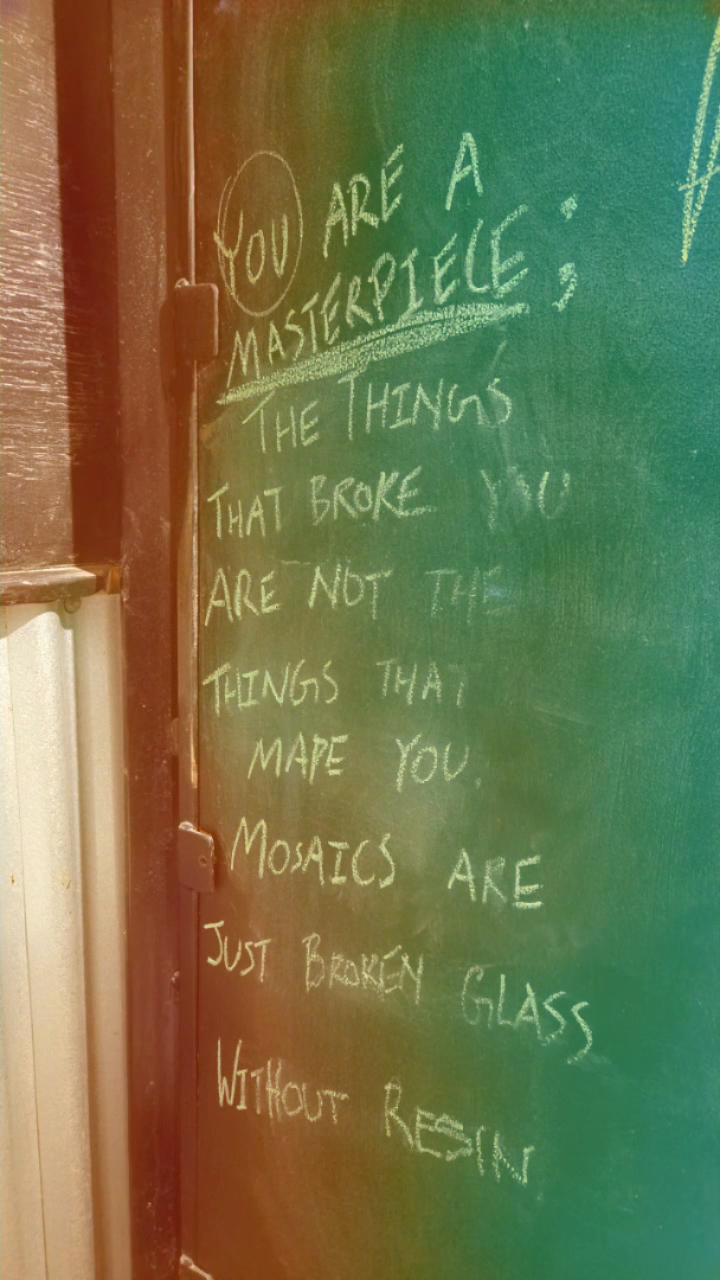 YOU ARE A
MASTERPIECE ;
THE THINGS
THAT BROKE YOU
ARE NOT THE
THINGS THAT
MADE YOU.
MOSAICS ARE
JUST BROKEN GLASS
WITHOUT RESIN